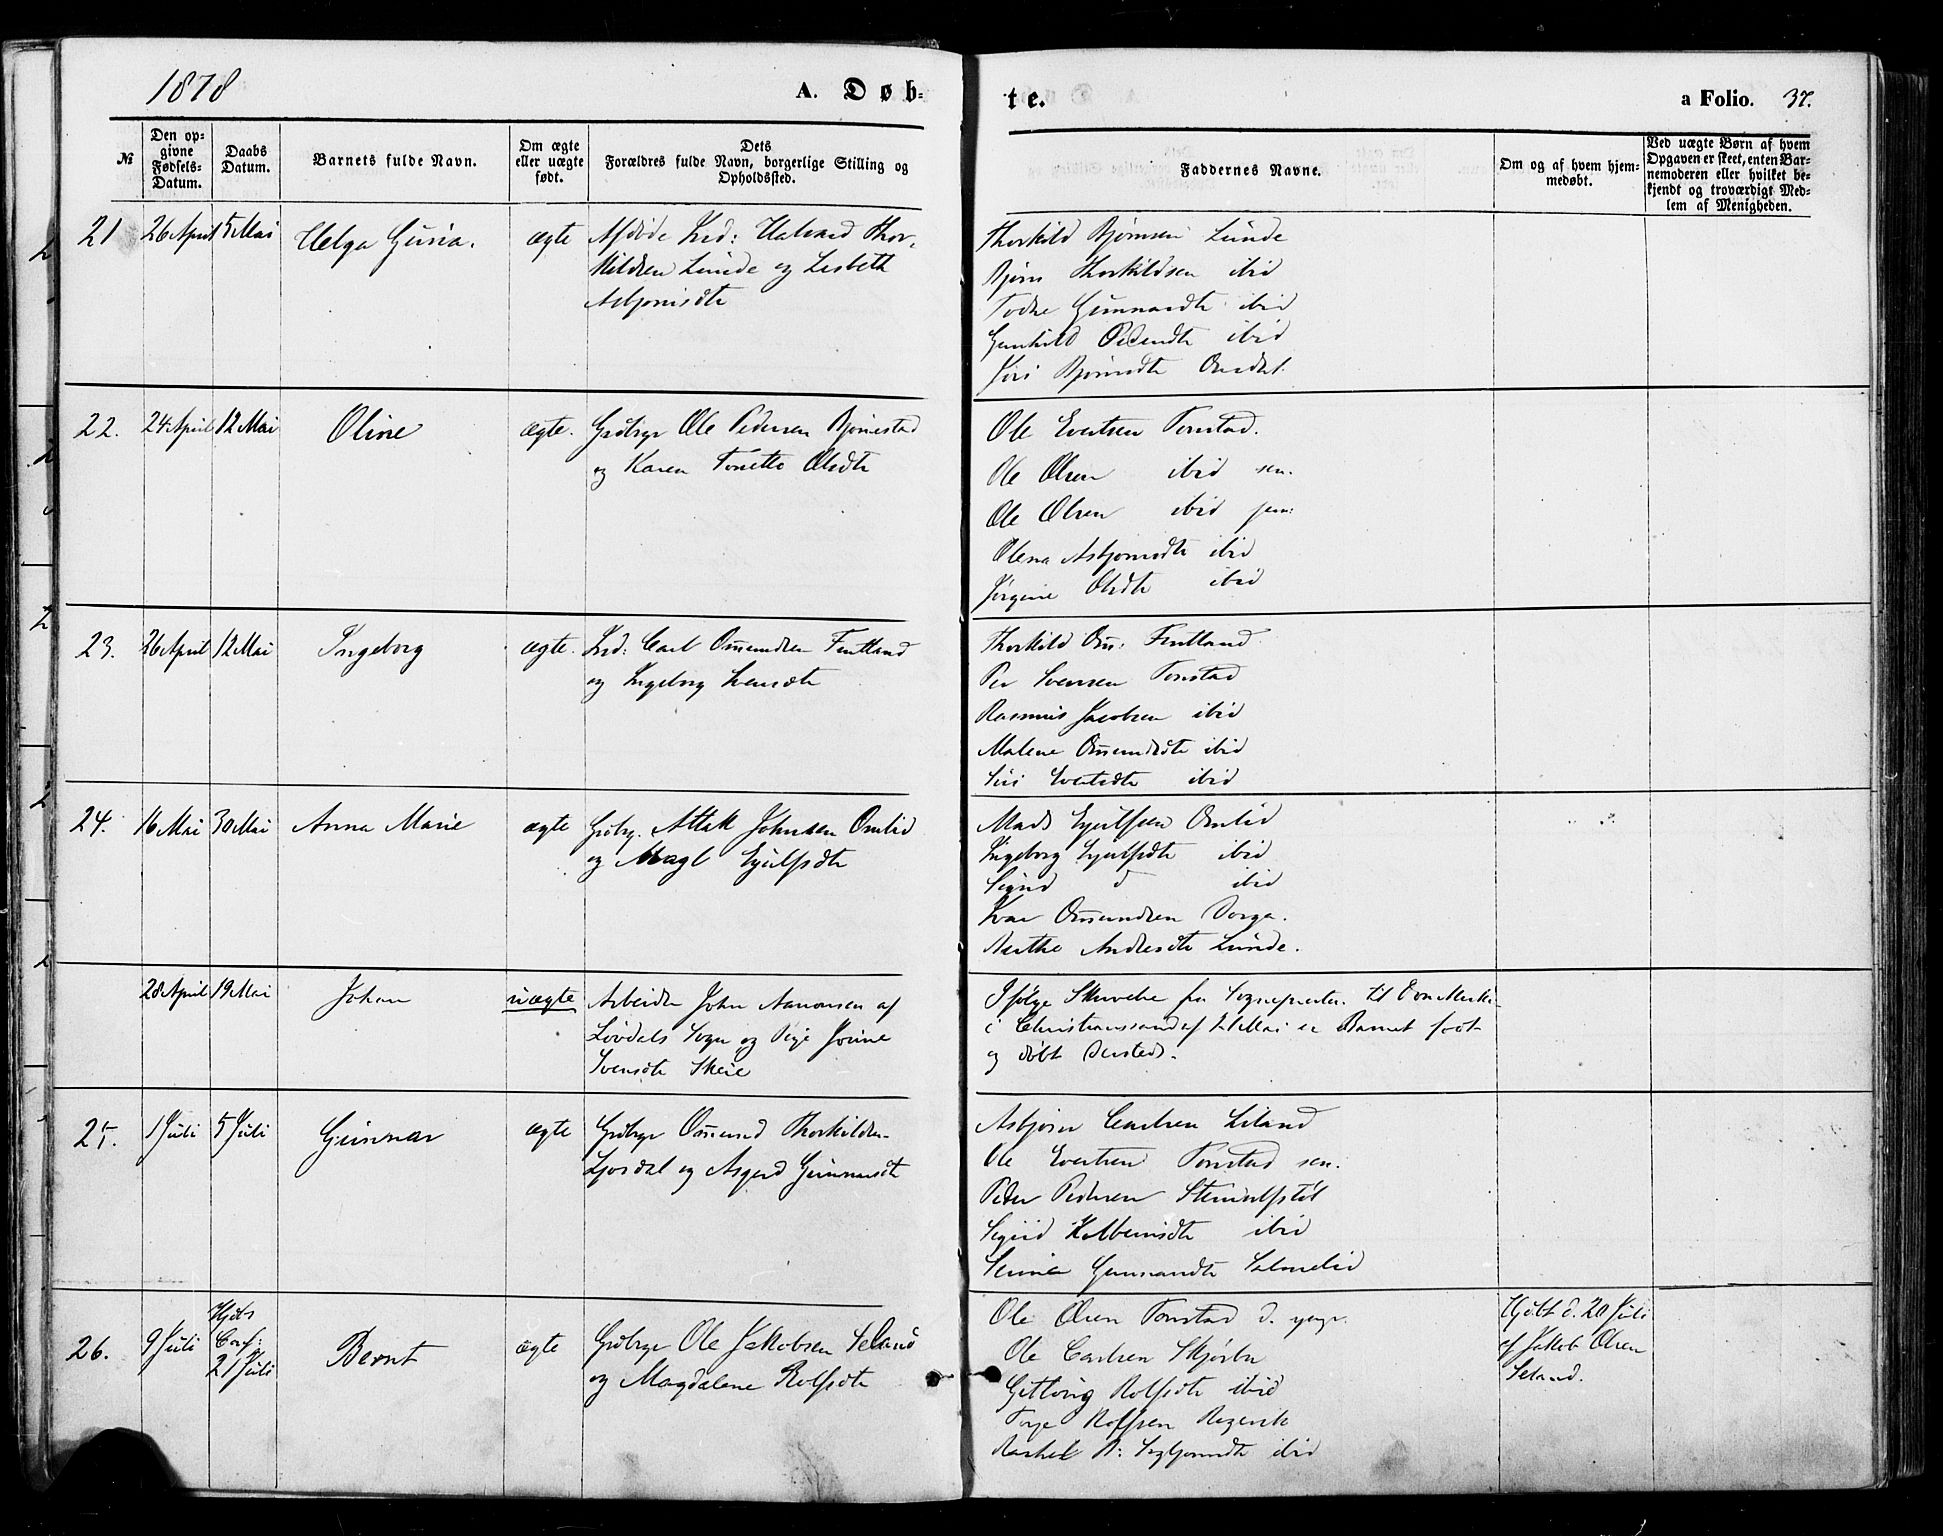 1878
A. Døb-
te.
a Folio. 37.
№
Den op-
givne
Fødsels-
Datum.
Daabs
Datum.
Barnets fulde Navn.
Om ægte
eller uægte
født.
Dets
Forældres fulde Navn, borgerlige Stilling og
Opholdssted.
Faddernes Navne.
Om og af hvem hjem-
medøbt.
Ved uægte Børn af hvem
Opgaven er skeet, enten Bar-
nemoderen eller hvilket be-
kjendt og troværdigt Med-
lem af Menigheden.
21 26 April 5 Mai Helga Guria. ægte
Afdøde Ind: Halvard Thor-
kildsen Lunde og Lisbeth
Asbjørnsdtr
Thorkild Bjørnsen Lunde
Bjørn Thorkildsen ibid
Todne Gunnarsdtr ibid
Gunhild Pedersdtr ibid
Siri Bjørnsdtr Ousdal.
22. 24 April 12 Mai Oline ægte.
Grdbrgr Ole Pedersen Bjørnestad
og Karen Tonette Olsdtr
Ole Evertsen Tonstad.
Ole Olsen ibid sen.
Ole Olsen ibid jun:
Olena Asbjørnsdtr ibid
Jørgine Olsdtr ibid
23. 26 April 12 Mai Ingeborg ægte.
Ind: Carl Omundsen Fintland
og Ingeborg Svensdtr
Thorkild Om: Fintland
Per Svensen Tonstad
Rasmus Jacobsen ibid
Malene Omundsdtr ibid
Siri Evertsdtr ibid
24. 16 Mai 30 Mai Anna Marie ægte
Grdbrg. Attak Johnsen Omlid
og Magl Ejulfsdtr
Mads Ejulfsen Omlid
Ingeborg Ejulfsdtr ibid
Sigrid d ibid
Ivar Omundsen Dorga.
Berthe Andersdtr Lunde.
28 April 19 Mai Johan uægte
Arbeider John Aanonsen af
Løvdals Sogn og Pige Jorine
Svensdtr Skeie
Ifølge Skrivelse fra Sognepresten til Domkirken
i Christianssand af 21 Mai er Barnet født
og døbt dersteds.
25. 1 Juli 5 Juli Gunnar ægte
Grdbrgr Omund Thorkildsen
Josdal og Asgerd Gunnarsdtr
Asbjørn Carlsen Liland
Ole Evertsen Tonstad sen.
Peder Pedersen
Sigrid ibid
Gunnarsdtr
26. 9 Juli
Hjdbt
Conf:
21 Juli
Bernt ægte
Grdbrgr Ole Jakobsen Seland
og Magdalene Rolfsdtr
Ole Olsen Tonstad d. yngr.
Ole Carlsen Skjørbu
Rolfsdtr ibid
Torje Rolfsen Røgevik
Rachel ibid
Hjdbt d. 20 Juli
af Jakob Olsen
Seland.